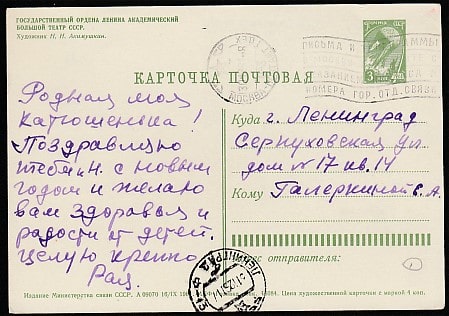 ГОСУДАРСТВЕННЫЙ ОРДЕНА ЛЕНИНА АКАДЕМИЧЕСКИЙ
БОЛЬШОЙ ТЕАТР СССР.
Художник Н. Н. Акимушкин.
КАРТОЧКА ПОЧТОВАЯ
Родная моя
Катюшенька!
Поздравляю
тебя и Н. с новым
годом и желаю
вам здоровья и
радости от детей.
целую крепко
Рая.
ПИСЬМА И
НОМЕРА ГОР. ОТД. СВЯЗИ
МОСКВА
3
Куда г. Ленинград
Серпуховская ул
дом №17 кв. 14
Кому Галеркиной С. А.
Адрес отправителя:
ЛЕНИНГРАД
Издание Министерства связи СССР. А 09070 16/IX
Цена художественной карточки с маркой 4 коп.